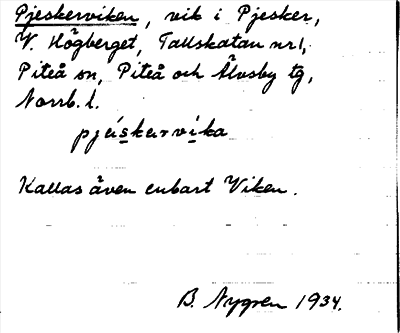 Pjeskerviken, vik i Pjesker,
V. Högberget, Tallskatan nr 1,
Piteå sn, Piteå och Älvsby tg,
Norrb. l.
pjäskarvika
Kallas även enbart Viken.
B. Nygren 1934.